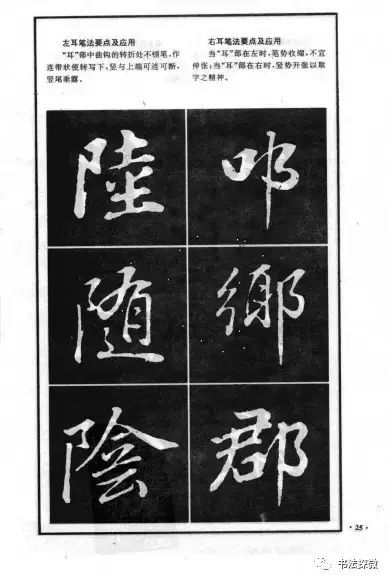 左耳笔法要点及应用
“耳”部中曲钩的转折处不顿笔,作
连带状使转写下,竖与上端可连可断,
竖尾垂露。
右耳笔法要点及应用
当“耳”部在左时,笔势收缩,不宜
伸张;当“耳”部在右时,竖势开张以取
字之精神。
陸
随
鄉
陰
郡
·25·
书法探教